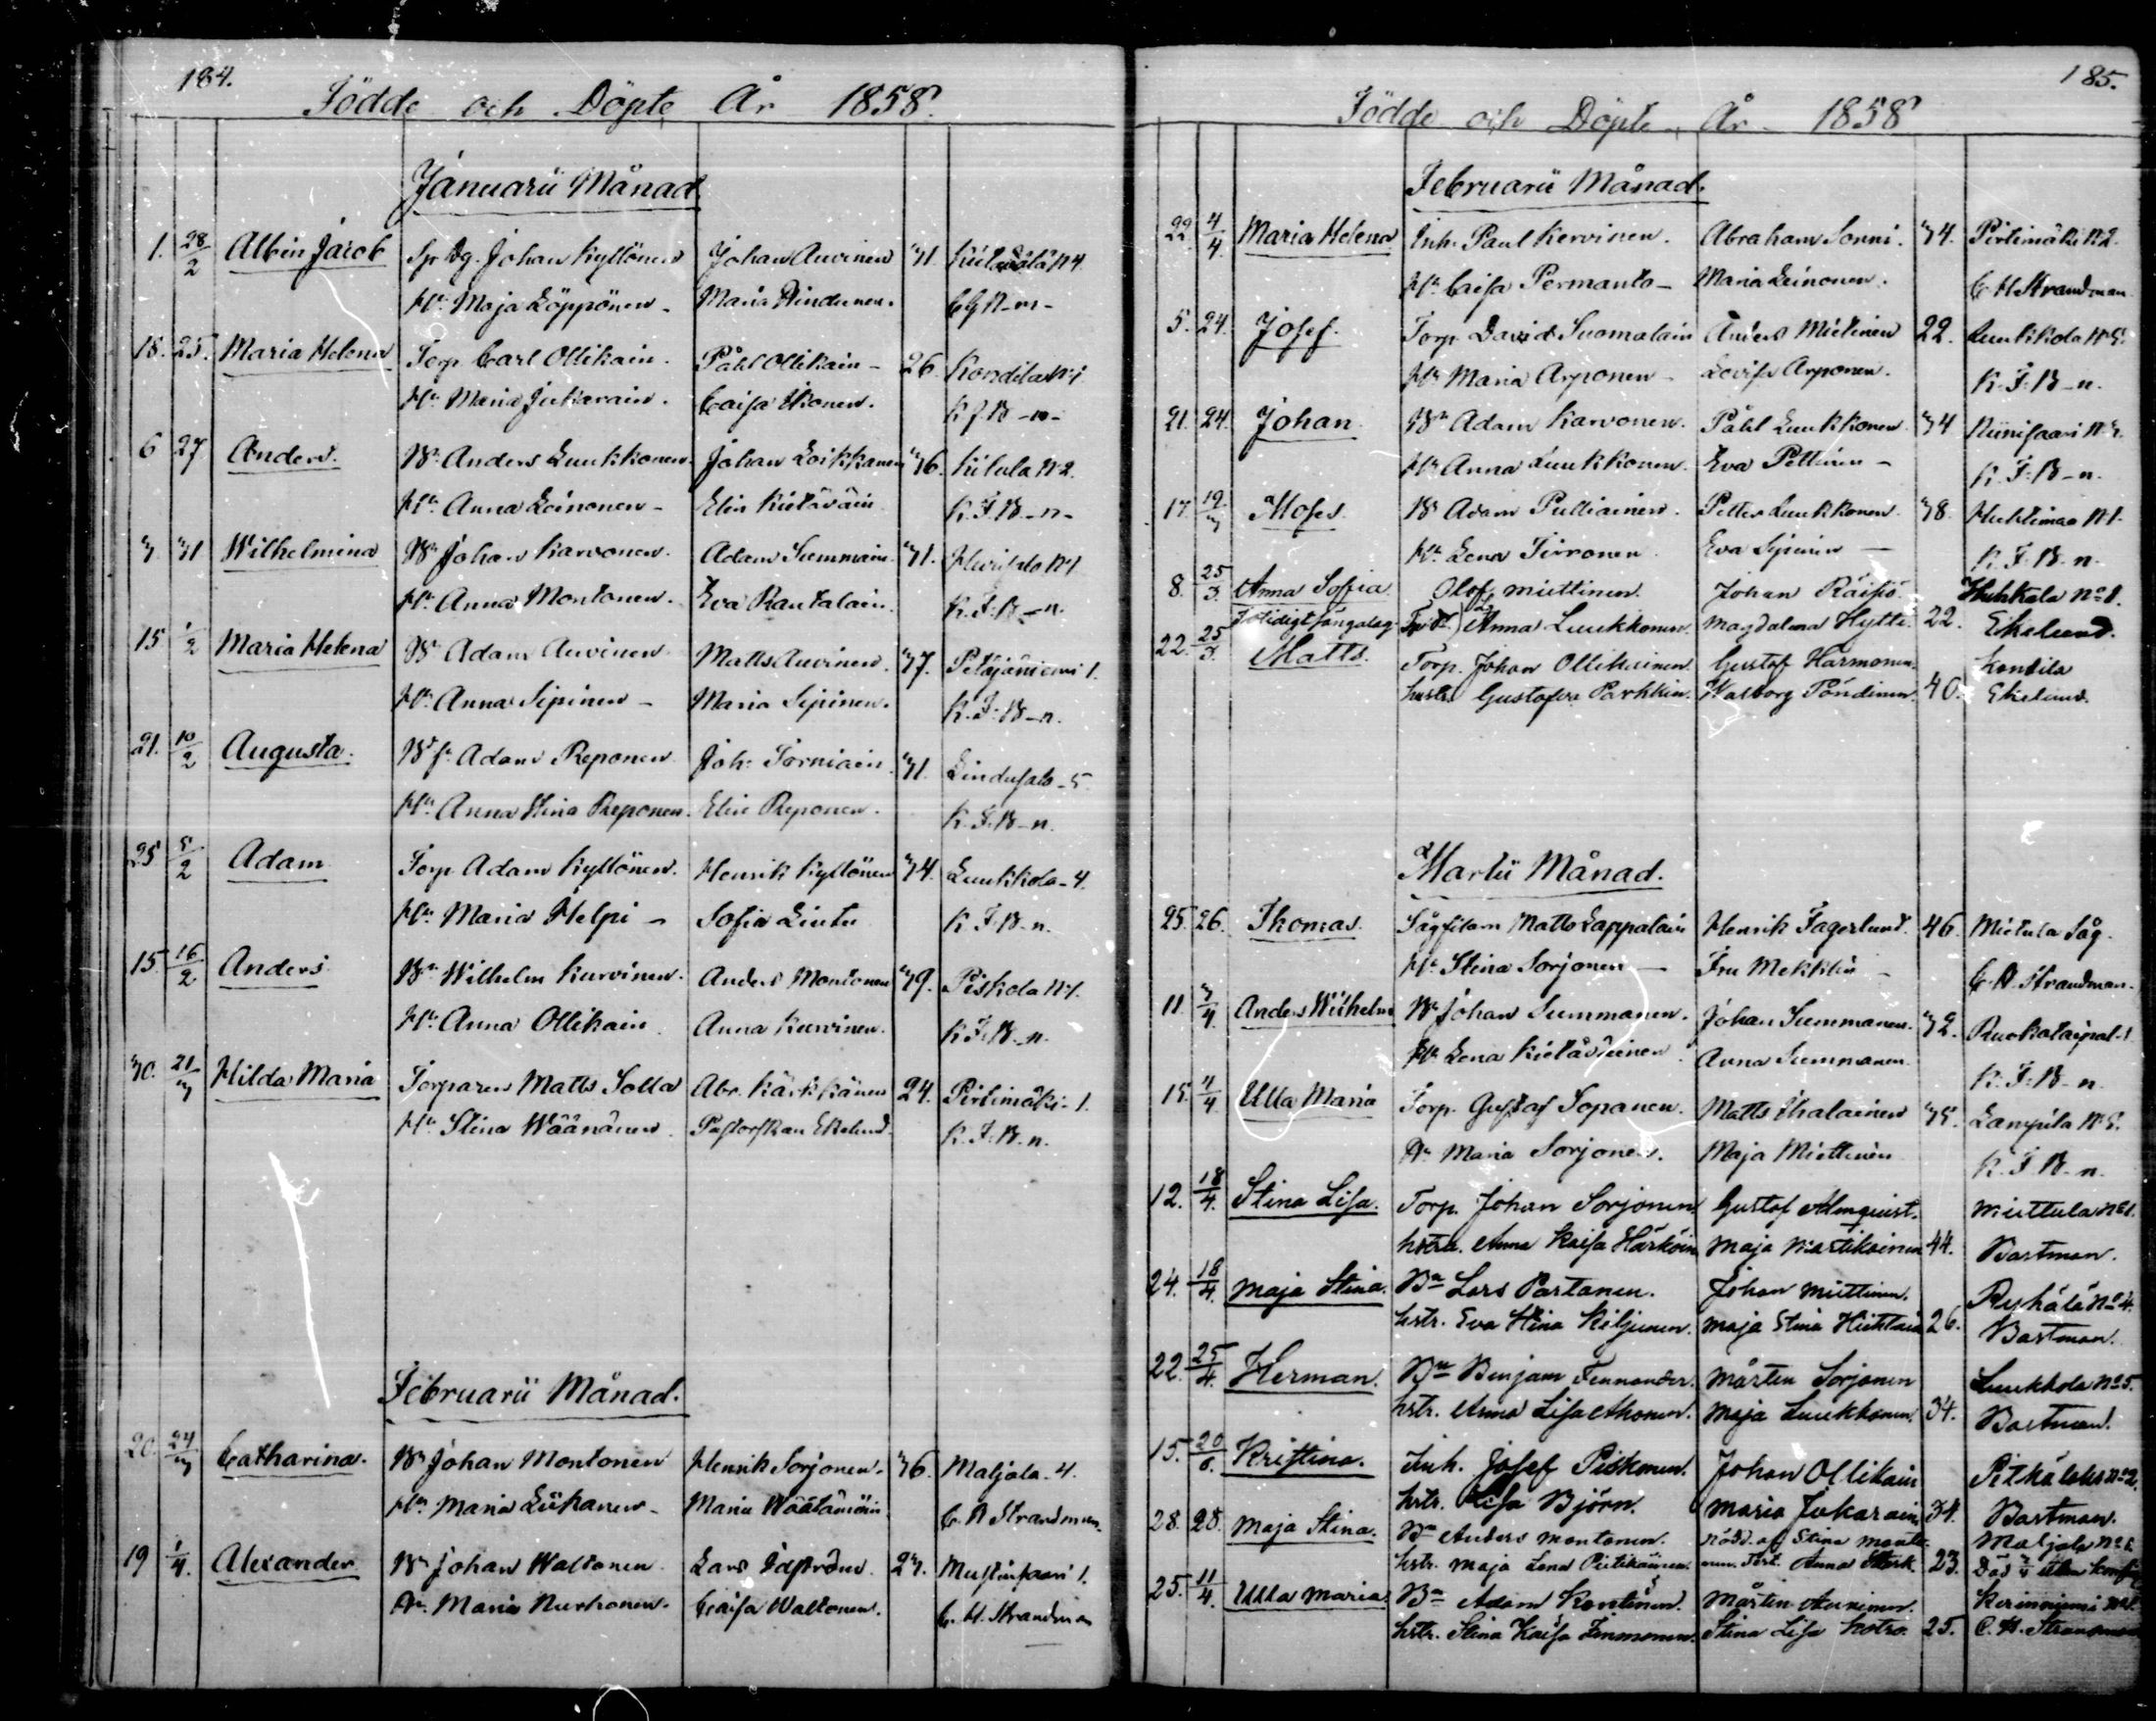 184.
Födde och Döpte År 1858.
Januarii Månad
1. 28/2 Albin Jacob Johan Kyllönen Johan Auvinen 31.
Hu. Maja Löppönen - Maria Hindunen.
18. 25. Maria Helena Torp. Carl Ollikain. Påhl Ollikain - 26. Kondila N:1
Hu. Maria Jukarain. Caisa Ikonen.
6 27 Anders. Bn. Anders Luukkonen. Johan Loikkanen 36. Kitula N:2.
Hu. Anna Leinonen - Elin Kietäväin K. F. B-n-
3. 31 Wilhelmina Bn Johan Karvonen. Adam Summain. 31.
Hu. Anna Montonen. Eva Rautalain. K. F. B-n.
15 1/2 Maria Helena Bn Adam Auvinen Matts Auvinen. 37. Petäjäniemi 1.
Hu. Anna Sipinen - Maria Sipinen. K. F. B-n.
21. 10/2 Augusta. Adam Reponen Joh. Torniain 31. Lindusalo - 5
Hu. Anna Stina Reponen. Elin Reponen. K. F. B-n.
25 5/2 Adam Torp. Adam Kyllönen. Henrik Kyllönen 34. Luukkola - 4.
Hu. Maria Helpi - Sofia Lintu K. F. B-n.
15. 16/2 Anders Bn. Wilhelm Kurvinen. Anders Montonen 39. Piskola N:1.
Hu. Anna Ollikain Anna Kurvinen. K. F. B-n.
30. 21/3 Hilda Maria Torparen Matts Solla Abr. Kärkkänen 24. Pirtimäki - 1.
Hu. Stina Wäänänen. Pastorskan Ekelund. K. F. B-n.
Februarii Månad.
20. 24/3 Catharina. Bn Johan Montonen Henrik Sorjonen. 36. Maljala - 4.
Hu Maria Liikanen - Maria Wäätämöin C. H Strandman.
19 1/4. Alexander Bn Johan Waltonen Lars Idström. 23. 1.
Hu. Maria Nurhonen. Caisa Waltonen. C. H. Strandman
185.
Födde och Döpte År 1858
Februarii Månad.
22. 4/4 Maria Helena Inh. Paul Kervinen. Abraham Sonni. 34. Pirtimäki N:2.
Hu Caisa Permanto - Maria Leinonen. C. H Strandman
5. 24. Josef. Torp. David Suomalain Anders Mietinen 22. Luukkola N:5.
Hu Maria Arponen - Lovisa Arponen. K. F. B-n.
21. 24. Johan Bn Adam Karvonen. Påhl Luukkonen 34 Niinisaari N:3.
Hu Anna Luukkonen. Eva Pettinen - K. F. B-n.
17. 19/3 Moses Bn Adam Pulliainen. Petter Luukkonen. 38. Huhtimaa N:1.
Hu. Lena Tirronen Eva Sipinen - K. F. B-n.
8. 25/3 Anna Sofia Olof Miettinen. Johan Räisä. Huhkala No 1.
Anna Luukkonen. Magdalena Hytti. 22. Ekelund.
22. 25/3. Matts. Torp. Johan Ollikainen. Gustof Harmonen. Kondila
hustr. Gustofva Parkkin. Walborg Pöndinen. 40. Ekelund.
Martii Månad.
25. 26. Thomas. Matts Lappalain Henrik Fagerlund. 46. Mietula Såg.
Hu Stina Sorjonen - Fru Mekklin - C. H Strandman.
11. 3/4 Anders Wilhelm Bn Johan Summanen. Johan Summanen. 32. Ruokotaipal-1
Hu. Lena Kietäväinen Anna Summanen K. F. B-n.
15. 11/4 Ulla Maria Torp. Gustaf Sopanen. Matts Ihalainen 35. Lampila N:5.
Hu. Maria Sorjonen. Maja Miettinen K. F. B-n.
12. 18/4. Stina Lisa. Torp. Johan Sorjonen Gustof Almquist. Miettula No 1.
hstru. Anna Kaisa Härköin Maja Martikainen 44. Bastman.
24. 18/4. Maja Stina. Bn Lars Partanen. Johan Miettinen. Ryhälä No 4.
hstr. Eva Stina Kiljunen. Maja Stina Hiltuin 26. Bastman.
22. 25/4. Herman. Bn Benjam Fennander. Mårten Sorjonen Luukkola No 5.
hstr. Anna Lisa Ahonen. Maja Luukkonen. 34. Bastman.
15. 20/6. Kristina. Inh. Josef Piskonen. Johan Ollikain Pitkälaks No 2.
hstr. Lisa Björn. Maria Jukarain 34. Bastman.
28. 28. Maja Stina. Bn Anders Montonen. Nödd. af Stina Monto- Maljala No 1
hstr. Maja Lena Pietikäinen. nen. Test. Anna Stark. 23.
25. 11/4. Ulla Maria. Bn Adam Kontinen. Mårten Auvinen.
hstr. Stina Kaisa Immonen. Stina Lisa Kotro. 25. C. H. Strandman